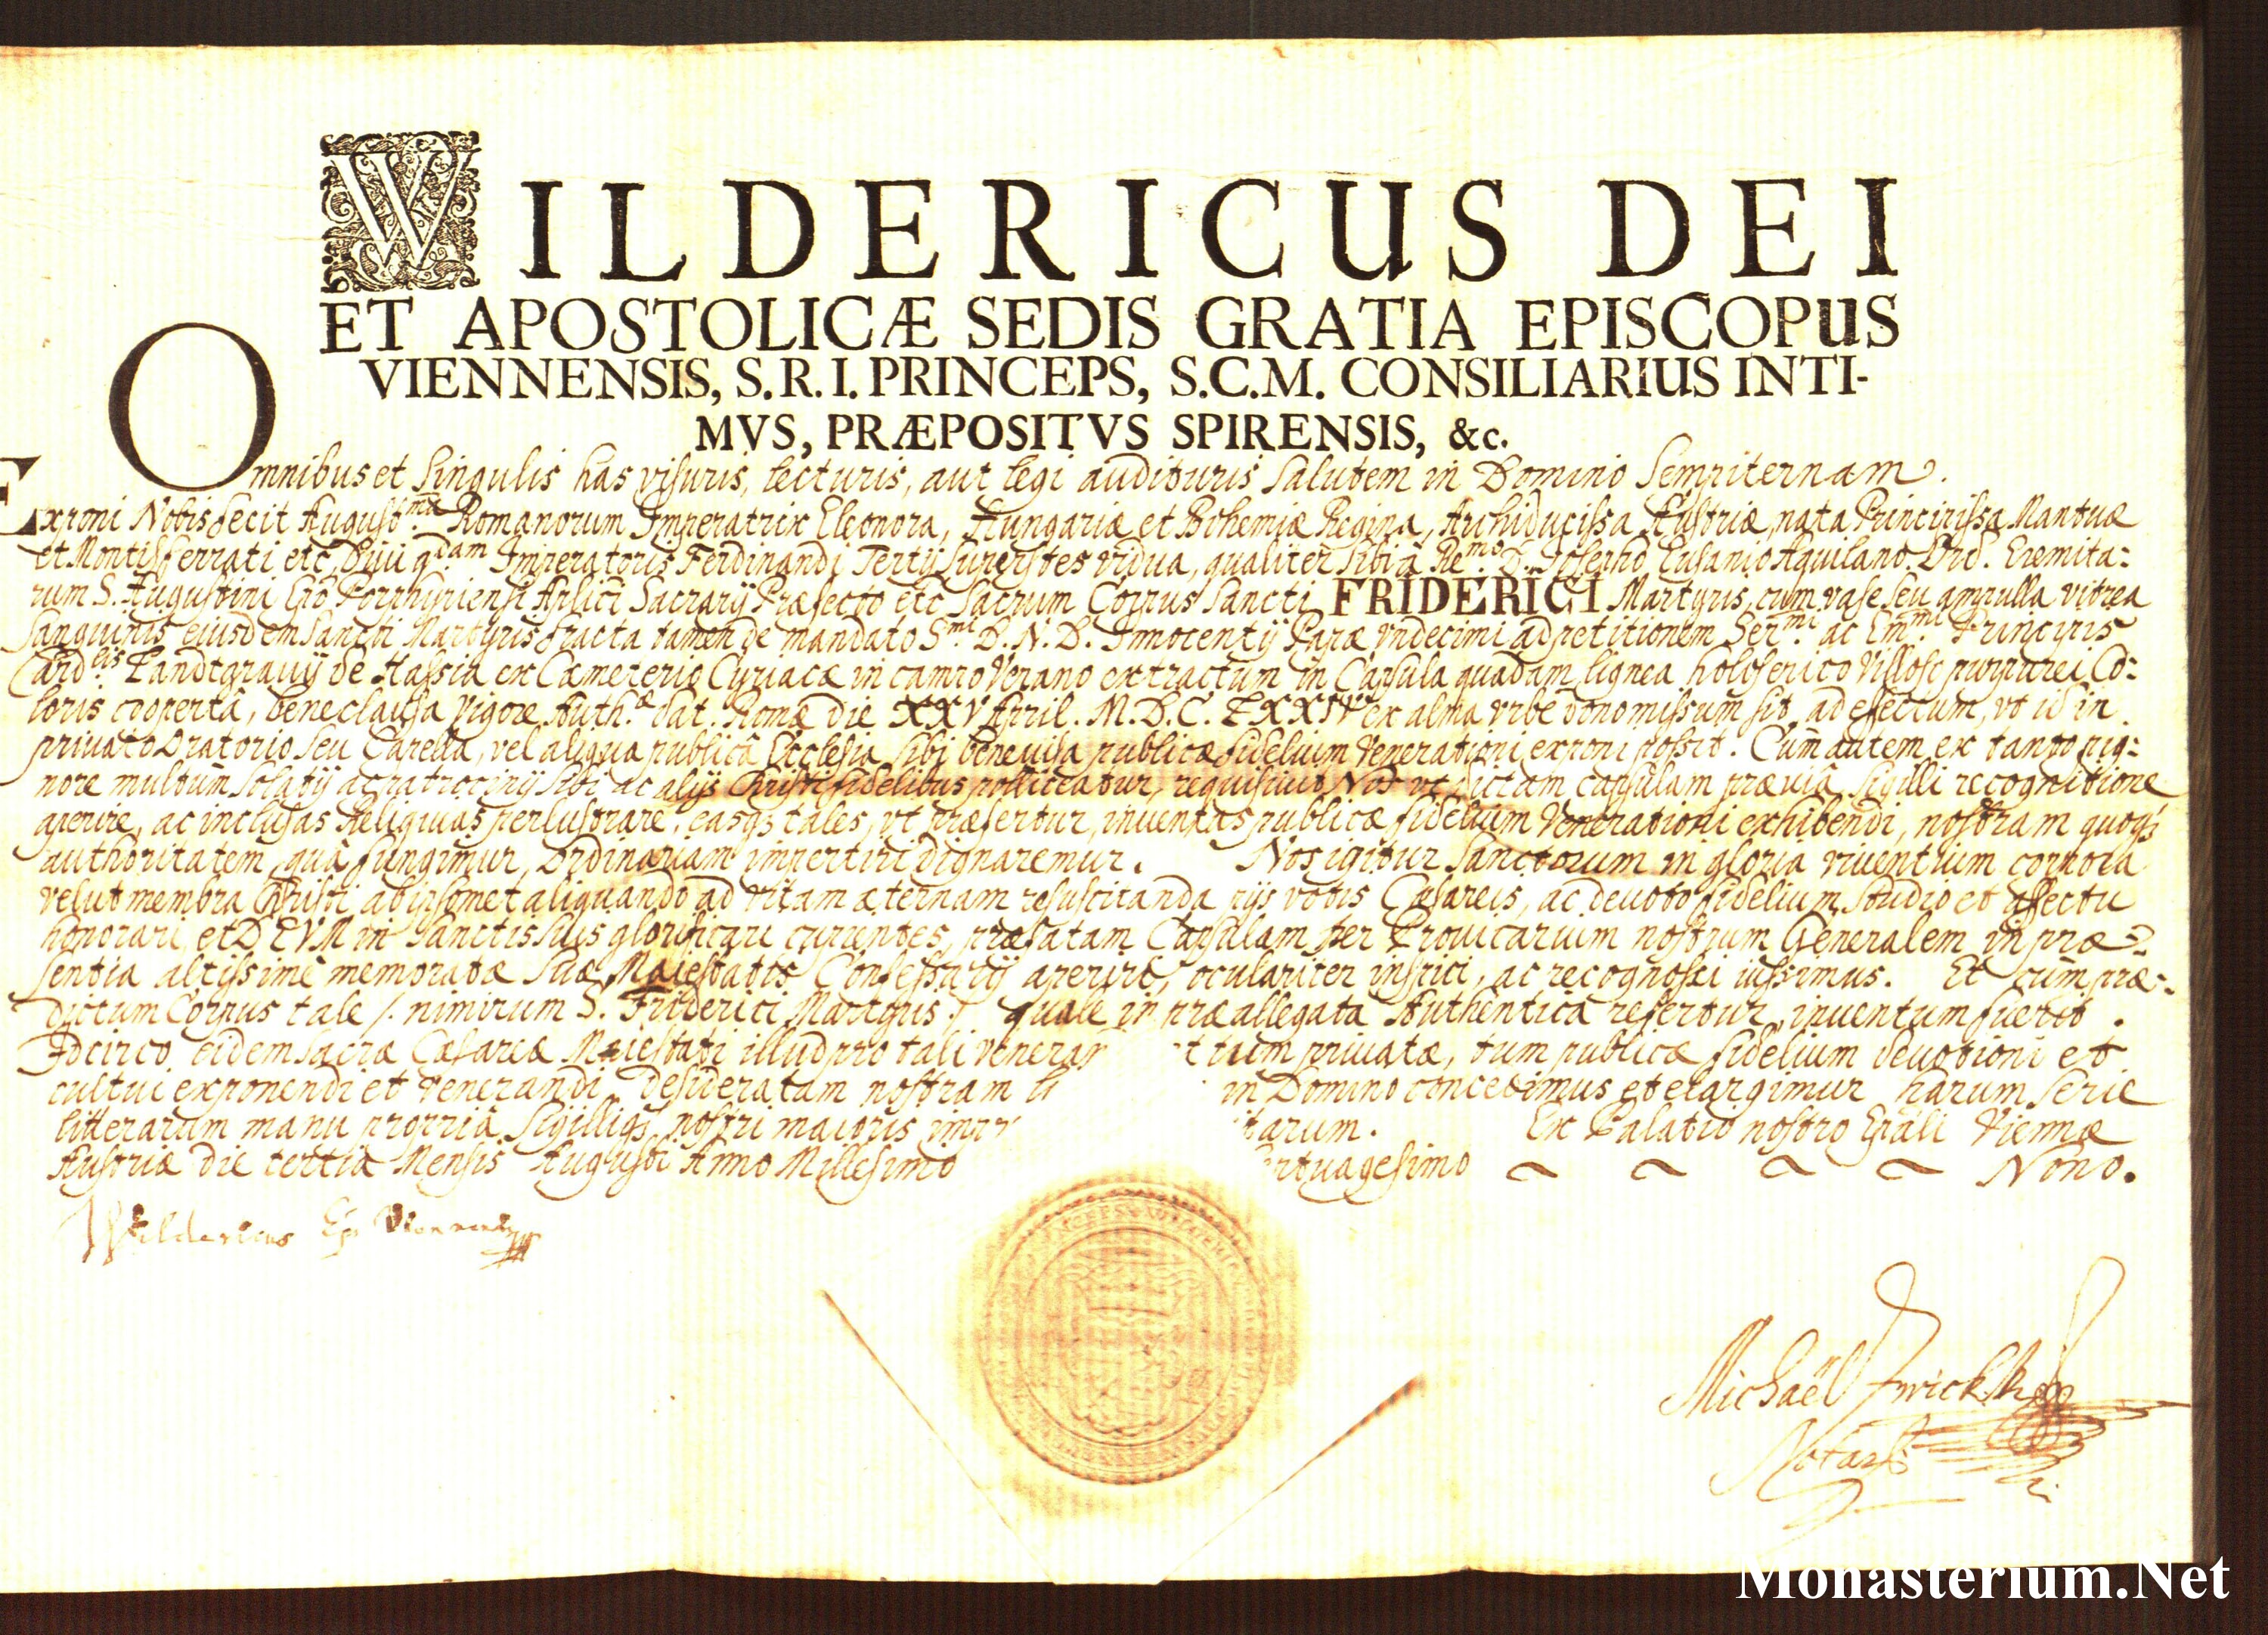 WILDERICUS DEI
ET APOSTOLICÆ SEDIS GRATIA EPISCOPUS
VIENNENSIS, S.R.I. PRINCEPS, S.C.M. CONSILIARIUS INTI-
MVS, PRÆPOSITVS SPIRENSIS, &c.
Omnibus et Singulis has visuris, lecturis, aut legi audituris salutem in Domino Sempiternam.
Exponi Nobis fecit August.ma Romanorum Imperatrix Eleonora, Hungariæ et Bohemiæ Regina, Archiducissa Austriæ, nata Principissa Mantuæ
et Montisferrati etc. Divi qdam Imperatoris Ferdinandi Tertij superstes vidua, qualiter sibi à Re.mo D. Josepho Eusanio Aquilano Ord. Eremita:
rum S. Augustini Epō Porphyriensi Aplici Sacrarij Præfecto etc Sacrum Corpus Sancti FRIDERICI Martyris, cum vase seu ampulla vitrea
sanguinis eiusdem Sancti Martyris fracta tamen de mandato S.mi D. N. D. Innocentij Papæ vndecimi ad petitionem Ser.mi ac Em.mi Principis
Card.lis Landtgravij de Hassia ex Cæmeterio Cyriacæ in campo Verano extractum in Capsula quadam lignea holoserico villoso purpurei Co:
loris cooperta, bene clausa vigore Auth.æ dat. Romæ die XXV April. M.D.C.LXXIV ex alma vrbe dono missum sit, ad effectum, vt id in
priuato Oratorio seu Capella, vel aliqua publicâ Ecclesia sibi beneuisa publicæ fidelium Venerationi exponi possit. Cum autem ex tanto pig:
nore multum solatij ac patrocinij sibi ac alijs Christi fidelibus polliceatur, requisiuit Nos vt dictam capsulam præviâ Sigilli recognitione
aperire, ac inclusas Religuias perlustrare, easq; tales, vt præfertur, inventas publicæ fidelium Venerationi exhibendi, nostram quoq;
authoritatem, quâ fungimur, Ordinariam impertiri dignaremur. Nos igitur Sanctorum in gloria viventium corpora
velut membra Christi ab ipsomet aliquando ad vitam æternam resuscitanda pijs votis Cæsareis, ac devoto fidelium studio et affectu
honorari, et DEVM in Sanctis suis glorificari cupientes, præfatam Capsulam per Provicarium nostrum Generalem in præ:
sentia altissimè memoratæ Suæ Maiestatis Confessarij aperiri, oculariter inspici, ac recognosci iussimus. Et cum præ:
dictum Corpus tale /. nimirum S. Friderici Martyris ./ quale in præallegata Authentica refertur, inventum fuerit.
Idcirco eidem Sacræ Cæsareæ Maiestati illud pro tali venerar t tum privatæ, tum publicæ fidelium devotioni et
cultui exponendi et venerandi desideratam nostram li in Domino concedimus et elargimur harum serie
litterarum manu propriâ Sigilliq; nostri maioris impr itarum. Ex Palatio nostro Epāli Viennæ
Austriæ die tertia Mensis Augusti Anno Millesimo ptuagesimo Nono.
Wildericus Ep Viennensis
Michaël
Notars
Monasterium.Net